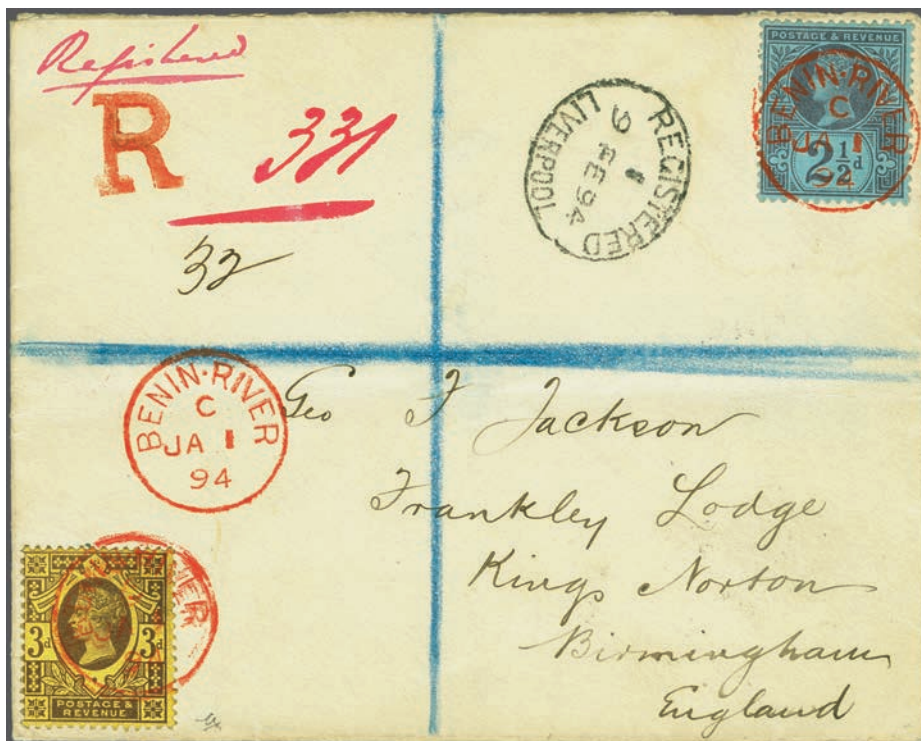 Registered
R 331
32
REGISTERED
9 FE 94
LIVERPOOL
POSTAGE & REVENUE
2½d
BENIN·RIVER
C
JA 1
BENIN·RIVER
C
JA 1
94
Geo F Jackson
Frankley Lodge
Kings Norton
Birmingham
England
3d 3d
POSTAGE &
REVENUE